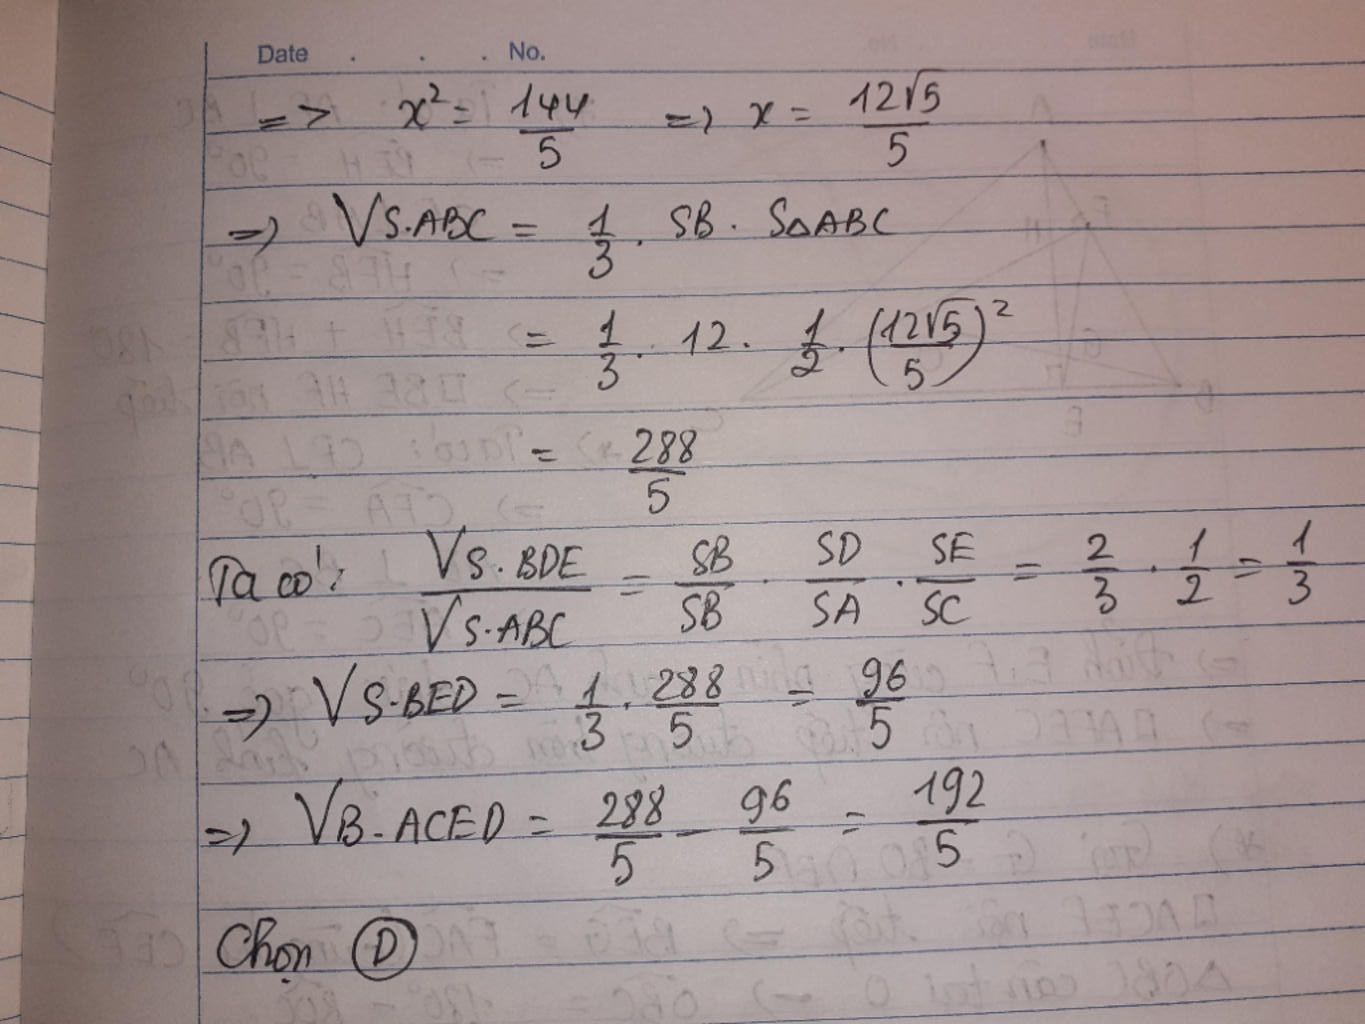 Date . . . No.
=> x² = 144/5 => x = 12√5/5
=> VS.ABC = 1/3 . SB . S△ABC
= 1/3 . 12 . 1/2 . (12√5/5)²
= 288/5
Ta có: VS.BDE/VS.ABC = SB/SB . SD/SA . SE/SC = 2/3 . 1/2 = 1/3
=> VS.BED = 1/3 . 288/5 = 96/5
=> VB.ACED = 288/5 - 96/5 = 192/5
Chọn D